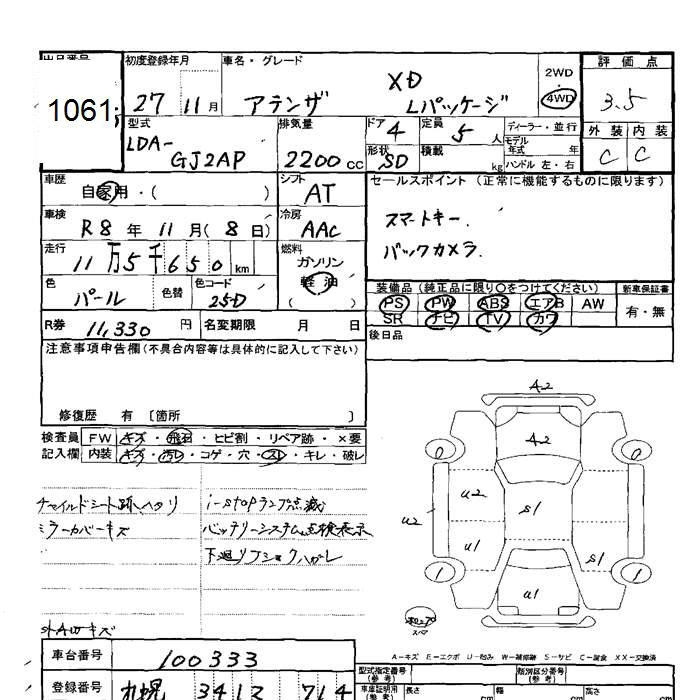 出品番号 1061
初度登録年月 27年 11月
車名・グレード アテンザ XD Lパッケージ
2WD 4WD
評価点 3.5
外装 C 内装 C
型式 LDA-GJ2AP
排気量 2200 CC
ドア 4
形状 SD
定員 5 人
積載 kg
ディーラー・並行
モデル年式 年
ハンドル 左・右
車歴 自家用・( )
シフト AT
セールスポイント (正常に機能するものに限ります)
スマートキー.
バックカメラ.
車検 R8 年 11 月 (8日)
冷房 AAC
走行 11万5千650 km
燃料 ガソリン 軽油 ( )
色 パール 色替 色コード 25D
装備品 (純正品に限り○をつけてください) 新車保証書
PS PW ABS エアB AW 有・無
SR ナビ TV カワ
R券 11,330 円 名変期限 月 日
後日品
注意事項申告欄 (不具合内容等は具体的に記入して下さい)
修復歴 有 〔箇所 〕
検査員 FW キズ・飛石・ヒビ割・リペア跡・×要
記入欄 内装 キズ・汚レ・コゲ・穴・スレ・キレ・破レ
チャイルドシート跡 ヘタリ
ミラーカバーキズ
i-stopランプ点滅
バッテリーシステム点検表示
下廻り
外AWキズ
A2
A2
0 0
U2 U2 S1
U1 S1
1 1
U1
スペア
A-キズ E-エクボ U-凹み W-補修跡 S-サビ C-腐食 XX-交換済
車台番号 100333
型式指定番号 (参考) 類別区分番号 (参考)
登録番号 札幌
車庫証明用 (参考) 長さ cm 幅 cm 高さ cm